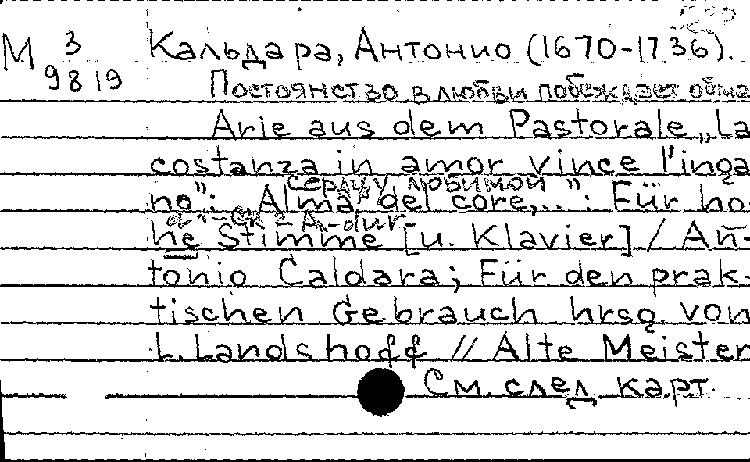 М 3 Кальдара, Антонио (1670-1736).
9819
Постоянство в любви побеждает обма
Arie aus dem Pastorale „La
costanza in amor vince l'inga
сердцу, любимой
no": „Alma del core,..": Für ho-
A-dur
he Stimme [u. Klavier] / An-
tonio Caldara; Für den prak-
tischen Gebrauch hrsg. von
L. Landshoff // Alte Meister
См. след. карт.